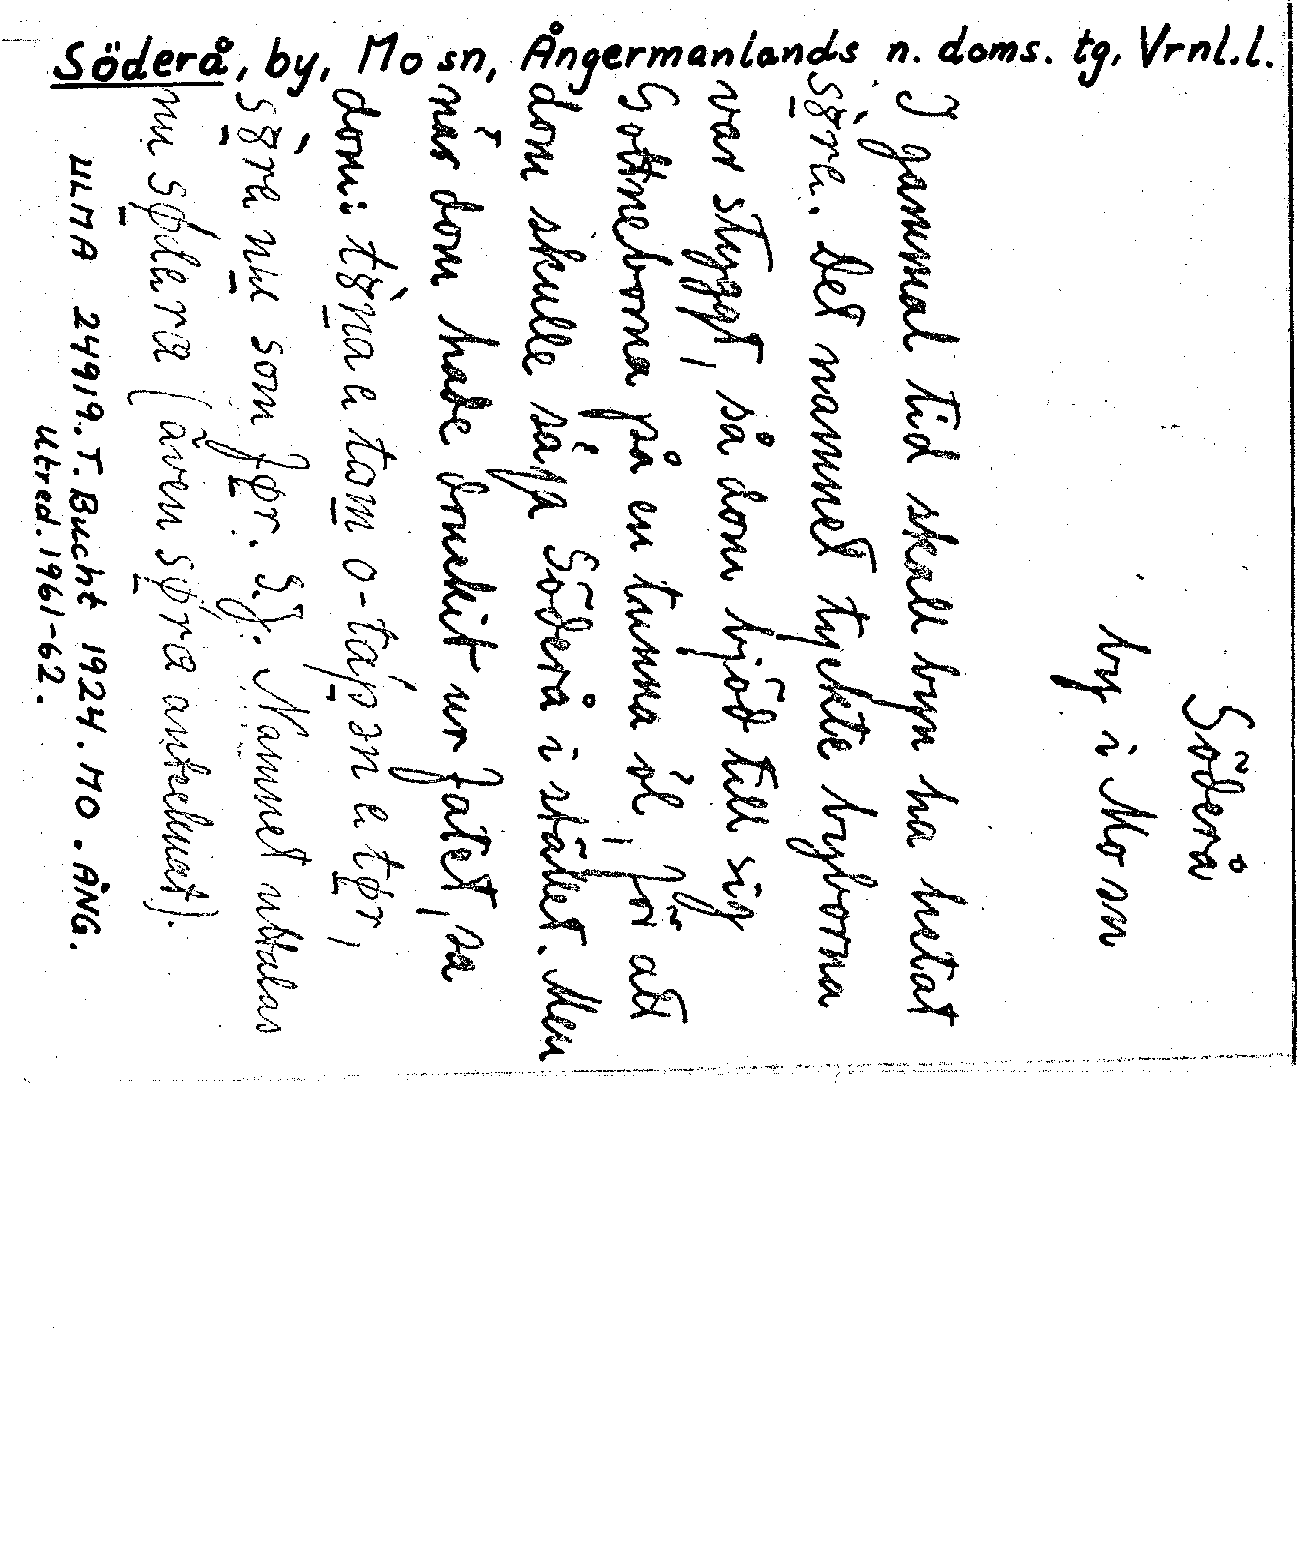 Söderå, by, Mo sn, Ångermanlands n. doms. tg, Vrnl.l.
Söderå
by i Mo sn
I gammal tid skall byn ha hetat
sø̀ra. Det namnet tyckte byborna
var stygt, så dom bjöd till sig
Gottneborna på en tunna öl, för att
dom skulle säja Söderå i stället. Men
när dom hade druckit ur fatet, sa
dom: tø̀na e tom o-tápən e tør,
sø̀ra nu som før. S.J. Namnet uttalas
nu sǿdera (även sǿra antecknat).
ULMA 24919. T. Bucht 1924. MO. ÅNG.
Utred. 1961-62.